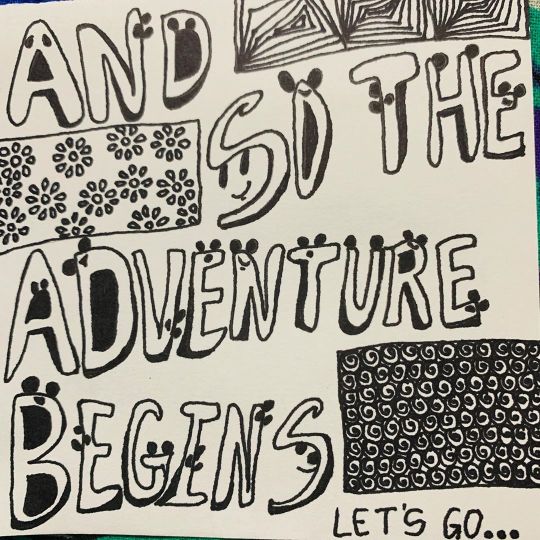 AND
SO THE
ADVENTURE
BEGINS
LET'S GO...